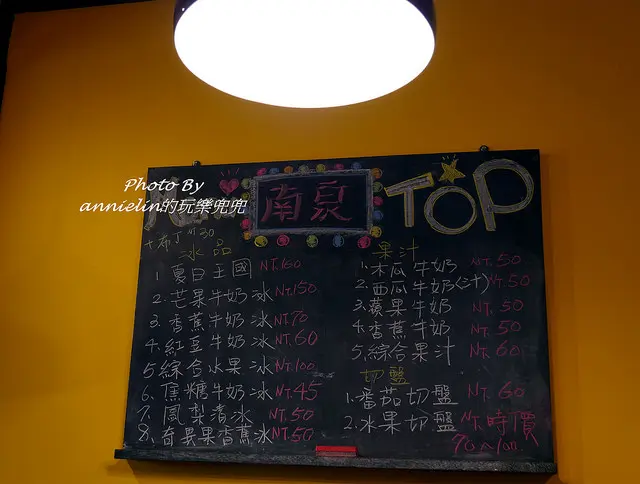 Photo By
annielin的玩樂兜兜
南泉
TOP
+布丁 NT 30
冰品
1. 夏日王國 NT.160
2. 芒果牛奶冰 NT.150
3. 香蕉牛奶冰 NT.70
4. 紅豆牛奶冰 NT.60
5. 綜合水果冰 NT.100
6. 焦糖牛奶冰 NT.45
7. 鳳梨清冰 NT.50
8. 奇異果香蕉冰 NT.50
果汁
1. 木瓜牛奶 NT.50
2. 西瓜牛奶(汁) NT.50
3. 蘋果牛奶 NT.50
4. 香蕉牛奶 NT.50
5. 綜合果汁 NT.60
切盤
1. 番茄切盤 NT.60
2. 水果切盤 NT.時價
70~100